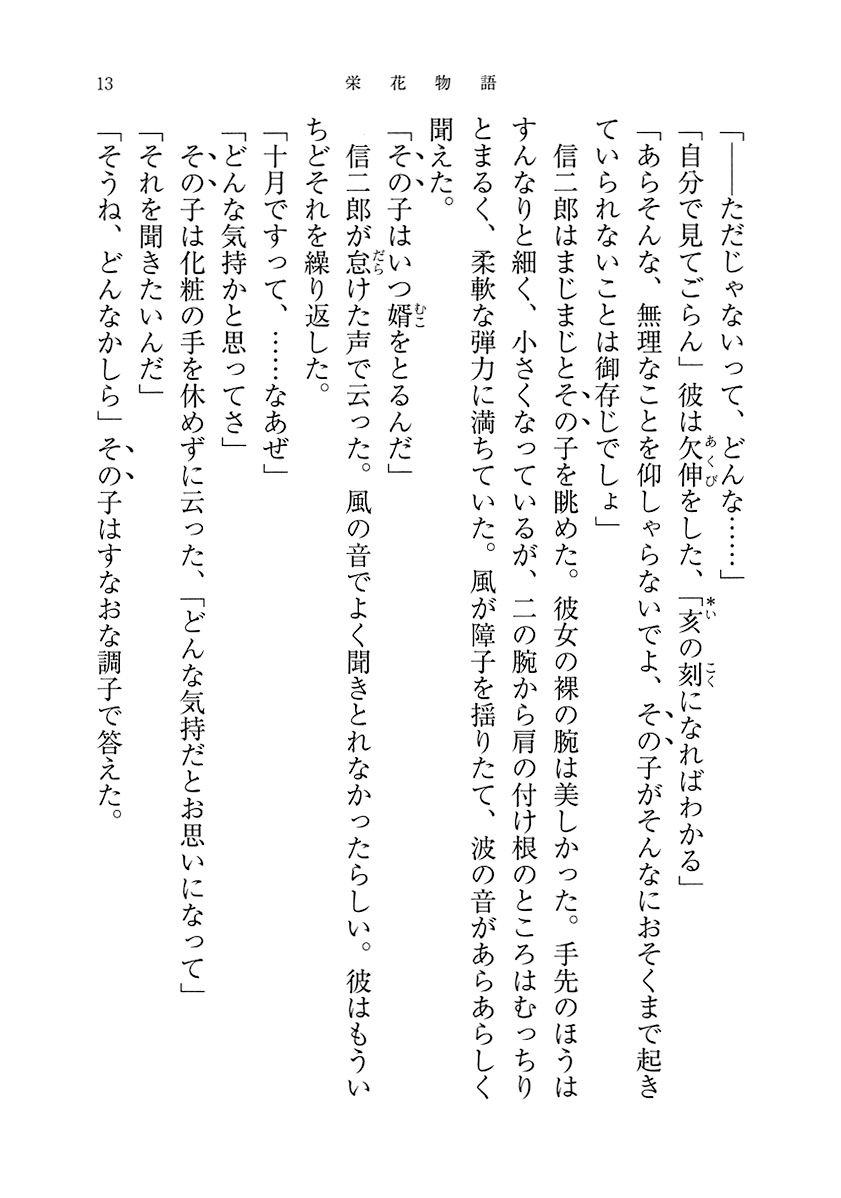 13
栄花物語
「――ただじゃないって、どんな……」
「自分で見てごらん」彼は欠伸をした、「*亥の刻になればわかる」
「あらそんな、無理なことを仰しゃらないでよ、その子がそんなにおそくまで起き
ていられないことは御存じでしょ」
信二郎はまじまじとその子を眺めた。彼女の裸の腕は美しかった。手先のほうは
すんなりと細く、小さくなっているが、二の腕から肩の付け根のところはむっちり
とまるく、柔軟な弾力に満ちていた。風が障子を揺りたて、波の音があらあらしく
聞えた。
「その子はいつ婿をとるんだ」
信二郎が怠けた声で云った。風の音でよく聞きとれなかったらしい。彼はもうい
ちどそれを繰り返した。
「十月ですって、……なあぜ」
「どんな気持かと思ってさ」
その子は化粧の手を休めずに云った、「どんな気持だとお思いになって」
「それを聞きたいんだ」
「そうね、どんなかしら」その子はすなおな調子で答えた。